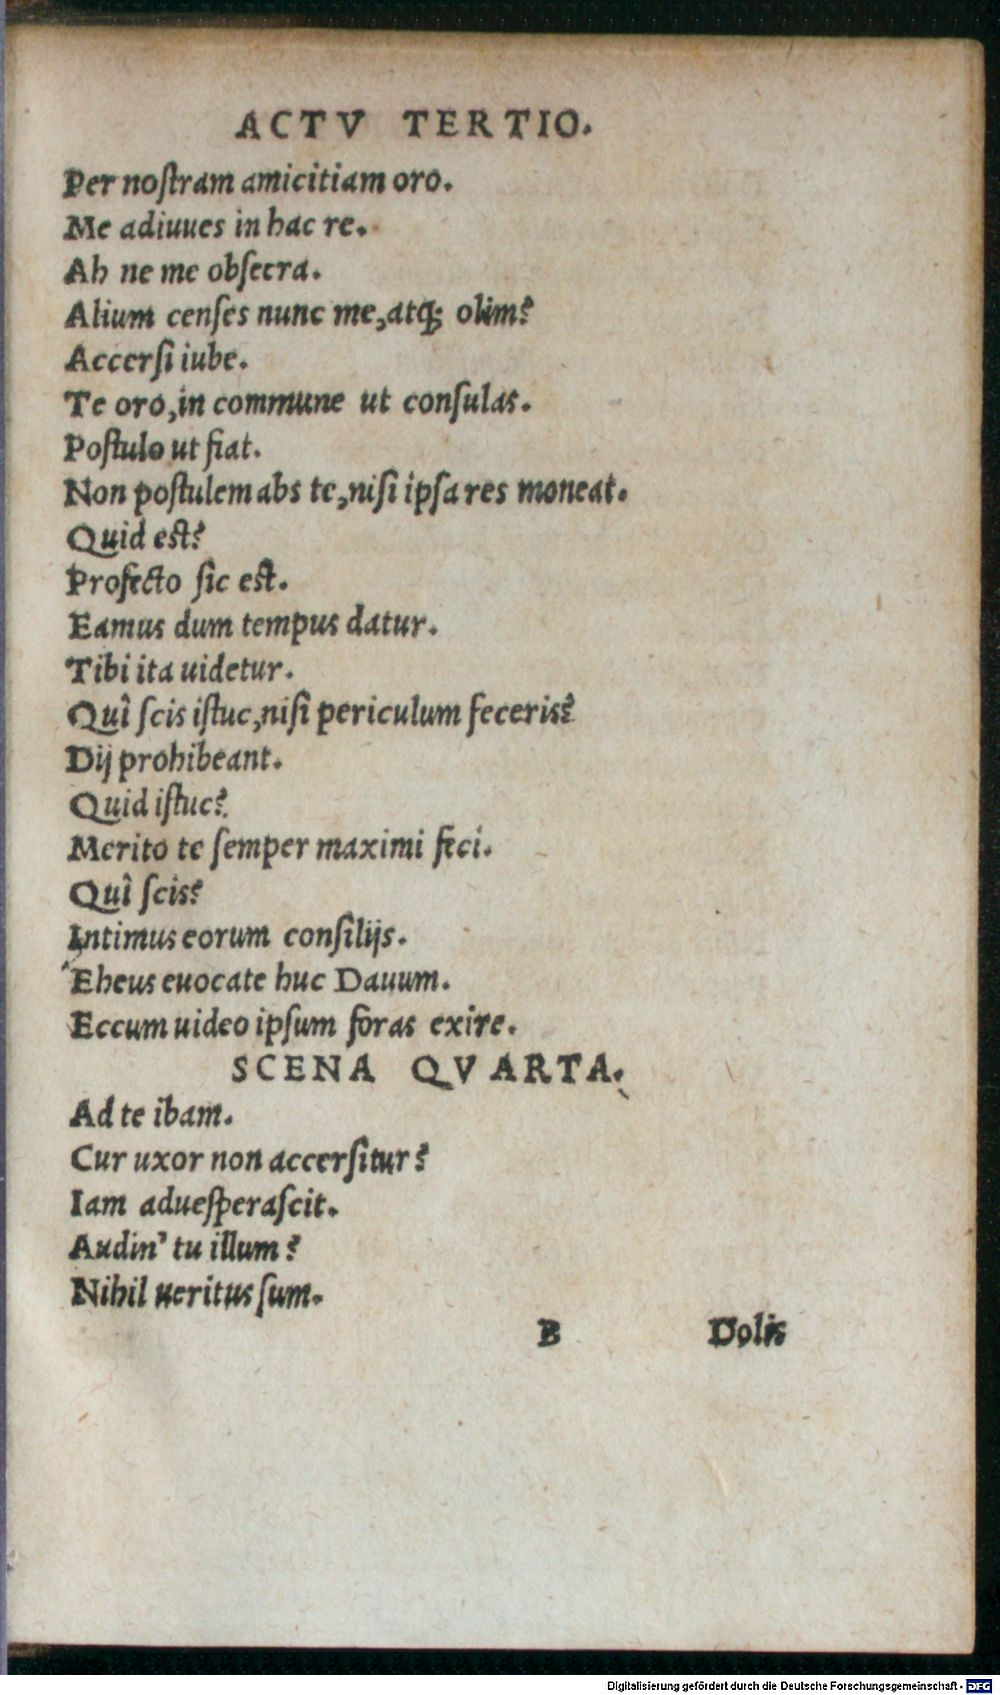 ACTV TERTIO.
Per noſtram amicitiam oro.
Me adiuues in hac re.
Ah ne me obſecra.
Alium cenſes nunc me,atq; olim?
Accerſi iube.
Te oro,in commune ut conſulas.
Poſtulo ut fiat.
Non poſtulem abs te,niſi ipſa res moneat.
Quid eſt?
Profecto ſic eſt.
Eamus dum tempus datur.
Tibi ita uidetur.
Quî ſcis iſtuc,niſi periculum feceris?
Dij prohibeant.
Quid iſtuc?
Merito te ſemper maximi feci.
Quî ſcis?
Intimus eorum conſilijs.
Eheus euocate huc Dauum.
Eccum uideo ipſum foras exire.
SCENA QVARTA.
Ad te ibam.
Cur uxor non accerſitur?
Iam adueſperaſcit.
Audin' tu illum?
Nihil ueritus ſum.
B Dolis
Digitalisierung gefördert durch die Deutsche Forschungsgemeinschaft - DFG